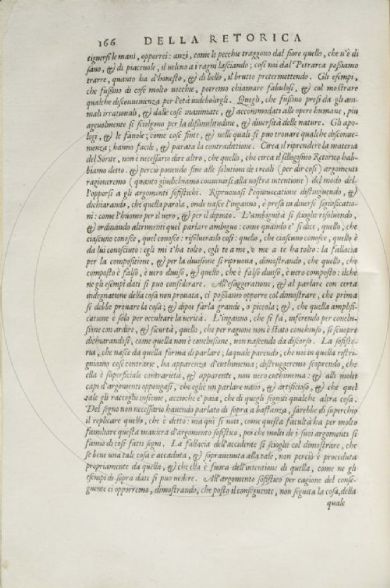 166 DELLA RETORICA
tignersi le mani, opporrei: anzi, come le pecchie traggono dal fiore quello, che v'è di
sano, & di piacevole, il veleno a i ragni lasciando; così noi dal Petrarca possiamo
trarre, quanto ha d'honesto, & di bello, il brutto pretermettendo. Gli esempi,
che fussino di cose molto vecchie, potremo chiamare fabulosi, & col mostrare
qualche disconvenienza per l'età indebolirgli. Quegli, che fussino presi da gli ani-
mali irrationali, & dalle cose inanimate, & accommodati alle opere humane, più
agevolmente si sciolgono per la dissimilitudine, & diversità delle nature. Gli apo-
logi, & le favole; come cose finte, & nelle quali si può trovare qualche disconve-
nienza; hanno facile, & parata la contradittione. Circa il riprendere la materia
del Sorite, non è necessario dire altro, che quello, che circa il sillogismo Retorico hab-
biamo detto: & perciò ponendo fine alle solutioni de reali (per dir così) argomenti
ragioneremo (quanto giudichiamo convenirsi alla nostra intentione) del modo del-
l'opporsi a gli argomenti sofistichi. Ripruovasi l'equivocatione distinguendo, &
dichiarando, che quella parola, onde nasce l'inganno, è presa in diversi significati-
ni: come l'huomo per il vero, & per il dipinto. L'ambiguità si scioglie risolvendo,
& ordinando altrimenti quel parlare ambiguo: come quando e' si dice, quello, che
ciascuno conosce, quel conosce: risolverassi così: quello, che ciascuno conosce, quello è
da lui conosciuto: egli mi t'ha tolto, egli te a me, o me a te ha tolto: la fallacia
per la compositione, & per la divisione si ripruova, dimostrando, che quello, che
composto è falso, è vero diviso, & quello, che è falso diviso, è vero composto: ilche
ne gli esempi dati si può considerare. All'essaggeratione, & al parlare con certa
indegnatione della cosa non provata, ci possiamo opporre col dimostrare, che prima
si debbe provare la cosa; & dipoi farla grande, o piccola; & che quella amplifi-
catione è solo per occultare la verità. L'inganno, che si fa, inferendo per conclu-
sione con ardire, & sicurtà, quello, che per ragione non è stato conchiuso, si scuopre
dichiarandosi, come quella non è conclusione, non nascendo da discorso. La sofiste-
ria, che nasce da quella forma di parlare; la quale parendo, che in sé quella restri-
gniamo cose contrarie, ha apparenza d'enthimema; distruggeremo scoprendo, che
ella è superficiale contrarietà, & apparente, non vero enthimema: & alli molti
capi d'argomenti oppongasi, che egli è un parlare vano, & artificioso, & che quel
tale gli raccoglie insieme, accioche e' paia, che di quegli segua qualche altra cosa.
Del segno non necessario havendo parlato di sopra a bastanza, sarebbe di superchio
il replicare quello, che è detto: ma qui si noti, come questa facultà ha per molto
familiare questa maniera d'argomento sofistico, poi che molti de i suoi argomenti si
fanno di così fatti segni. La fallacia dell'accidente si scioglie col dimostrare, che
se bene una tale cosa è accaduta, & sopravenuta alla tale, non perciò è proceduta
propriamente da quella, & che ella è fuora dell'intentione di quella, come ne gli
esempi di sopra dati si può vedere. All'argomento sofistico per cagione del conse-
guente ci opporremo, dimostrando, che posto il conseguente, non seguita la cosa, della
quale